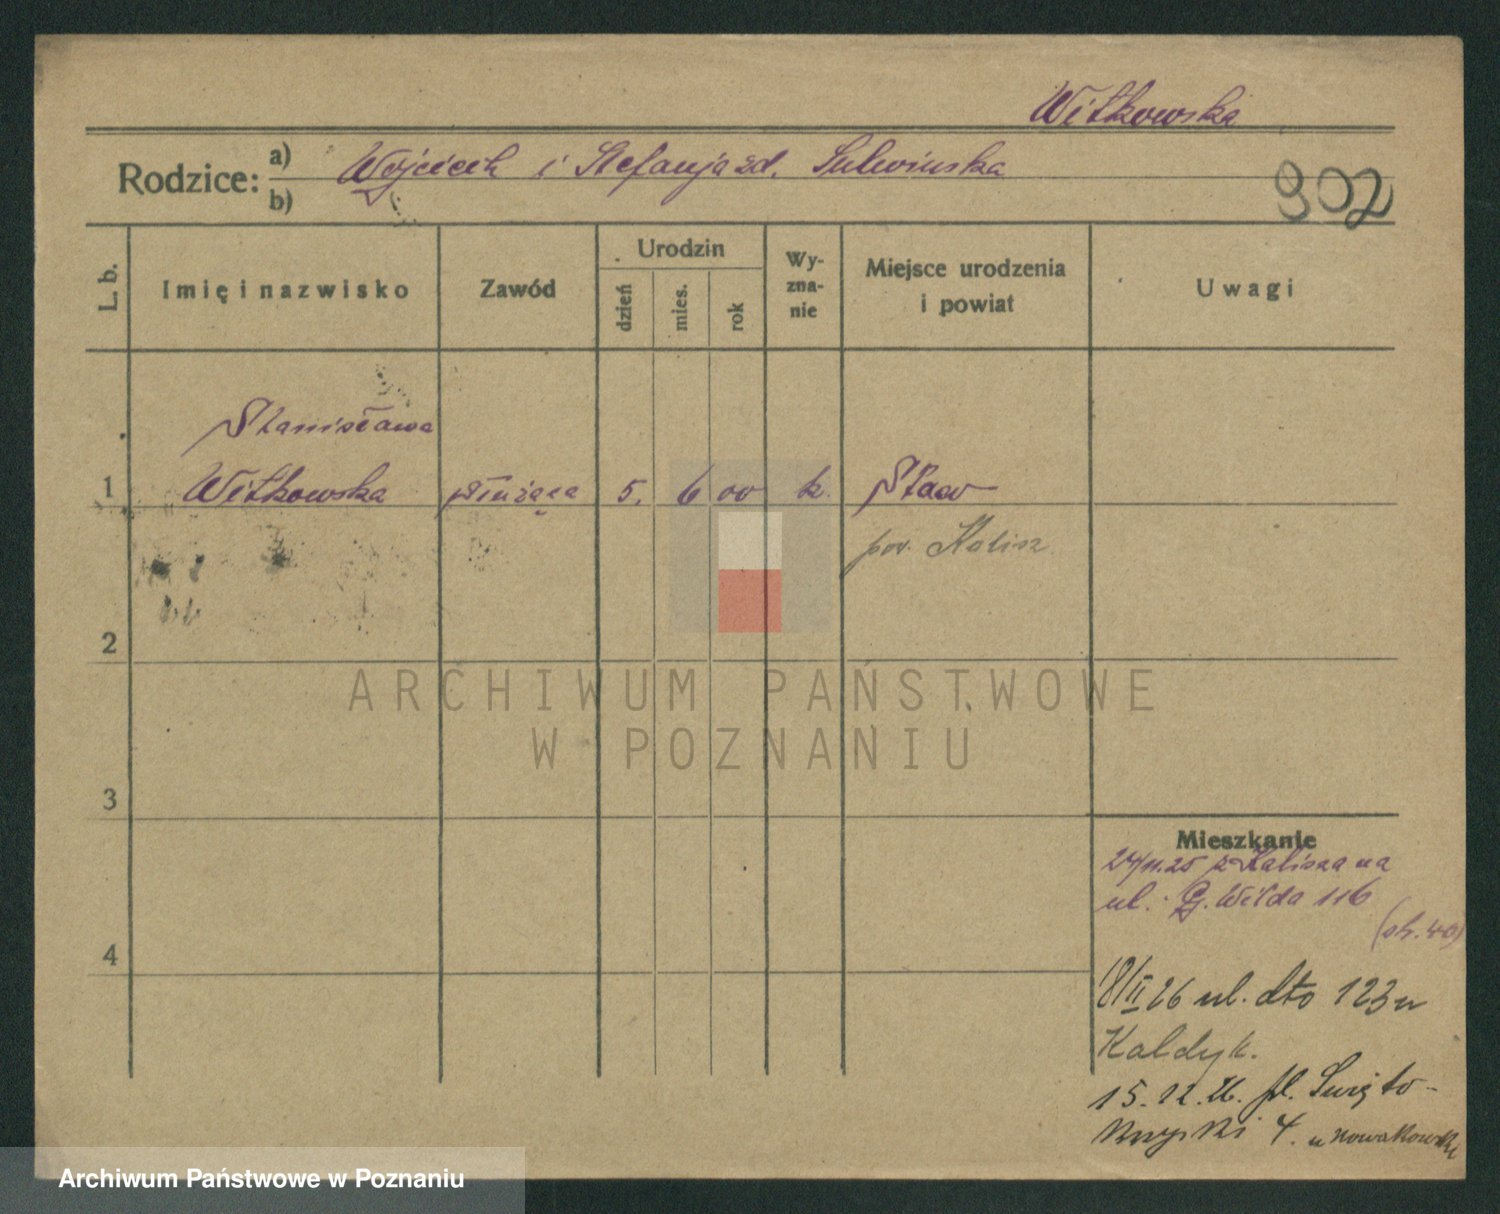 Witkowska
Rodzice: a) Wojciech i Stefanja zd. Sulwinska
b)
902
L. b.
Imię i nazwisko
Zawód
Urodzin
dzień
mies.
rok
Wy-
zna-
nie
Miejsce urodzenia
i powiat
Uwagi
Stanisława
1 Witkowska służąca 5. 6 00 k. Staw
pow. Kalisz
2
ARCHIWUM PAŃSTWOWE
W POZNANIU
3
Mieszkanie
24/11.25 z Kalisza na
ul. G. Wilda 116
4
18/II 26 ul. dto 123 u
Kaldyk.
15.12.26. pl. Święto-
krzyski 4. u Nowakowski
Archiwum Państwowe w Poznaniu